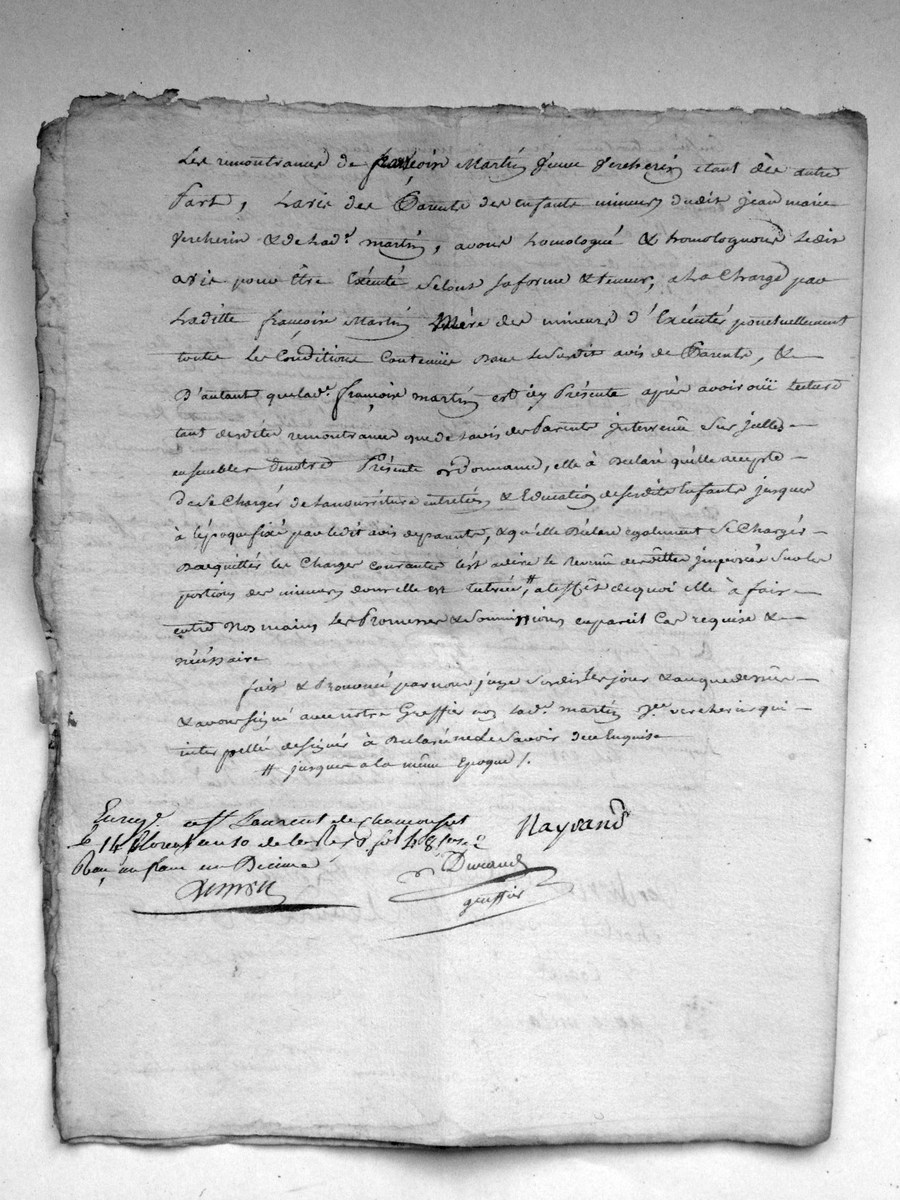 Les remontrances de françoise Martin veuve vercherin etant dès autre
Part, L'avis des Parents des enfants mineurs dudit jean marie
vercherin & de Lade. martin, avons homologué & homologuons Ledit
avis pour être Exécuté Selons sa forme & teneur, a La Charge par
Laditte françoise Martin Mère des mineurs d'Exécuter ponctuellement
toutes Les Conditions Contenües dans Le Susdit avis de Parents, &
D'autant que lade. françoise martin est icy Présente après avoir oüi Lecture
tant desdites remontrances que de L'avis des Parents intervenüe Sur icelles
ensembles de notre Présente ordonnance, elle à Déclaré qu'elle accepte
de Se Charger de La nourriture entretien & Education desdits Enfants jusques
à L'époque fixé par Ledit avis de parents, & qu'elle Déclare egalement Se Charger
D'acquitter Les Charges courantes C'est adire Le Revenu des dittes imposées Sur les
portions des mineurs dont elle est tutrice, # a l'effet de quoi elle à fait
entre Nos mains Les Promesses & Soumissions en pareil Cas requise &
nécéssaire
fait & Prononcé par nous juge Susdit Les jour & an que dessus
& avons signé avec notre Greffier non Lade. martin ve. vercherin qui
interpellée de signer à Déclaré ne Le Savoir de ce Enquise
# jusques a la même Epoque /.
Enregé a St Laurent de chamousset
le 14 floreal an 10 de la Rep
Reçu un franc un Decime
Nayrand
Durand
greffier